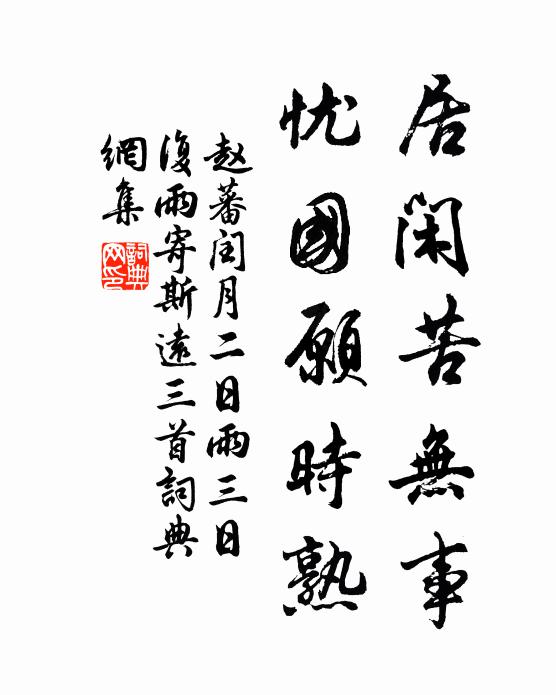 居閑苦無事
忧國願時熟
赵蕃閏月二日雨三日
復雨寄斯遠三首詞典
網集
詞典
网印